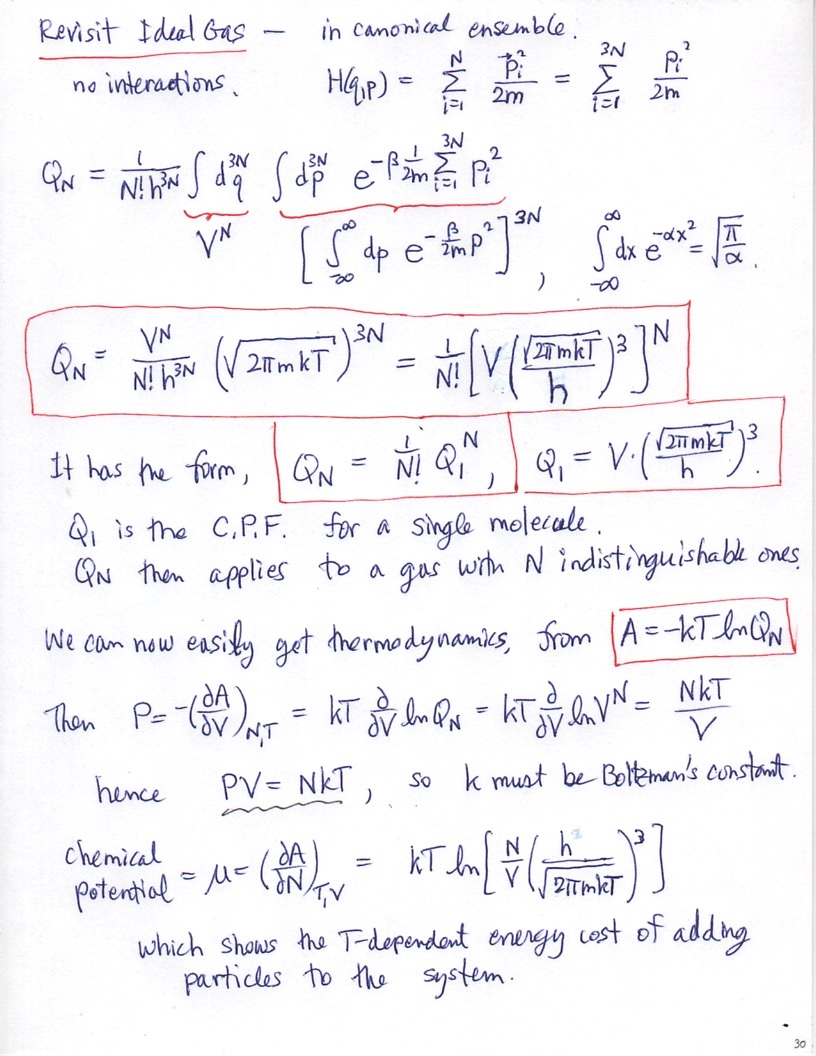 Revisit Ideal Gas – in canonical ensemble.
no interactions. H(q,p) = \sum_{i=1}^{N} \frac{\vec{p}_i^2}{2m} = \sum_{i=1}^{3N} \frac{p_i^2}{2m}
Q_N = \frac{1}{N! h^{3N}} \int d^{3N}q \int d^{3N}p e^{-\beta \frac{1}{2m} \sum_{i=1}^{3N} p_i^2}
V^N [\int_{-\infty}^{\infty} dp e^{-\frac{\beta}{2m} p^2}]^{3N}, \int_{-\infty}^{\infty} dx e^{-\alpha x^2} = \sqrt{\frac{\pi}{\alpha}}.
Q_N = \frac{V^N}{N! h^{3N}} (\sqrt{2\pi mkT})^{3N} = \frac{1}{N!} [V (\frac{\sqrt{2\pi mkT}}{h})^3]^N
It has the form, Q_N = \frac{1}{N!} Q_1^N, Q_1 = V \cdot (\frac{\sqrt{2\pi mkT}}{h})^3.
Q_1 is the C.P.F. for a single molecule.
Q_N then applies to a gas with N indistinguishable ones.
We can now easily get thermodynamics, from A = -kT ln Q_N
Then P = -(\frac{\partial A}{\partial V})_{N,T} = kT \frac{\partial}{\partial V} ln Q_N = kT \frac{\partial}{\partial V} ln V^N = \frac{NkT}{V}
hence PV = NkT, so k must be Boltzman's constant.
chemical potential = \mu = (\frac{\partial A}{\partial N})_{T,V} = kT ln [\frac{N}{V} (\frac{h}{\sqrt{2\pi mkT}})^3]
which shows the T-dependent energy cost of adding
particles to the system.
30